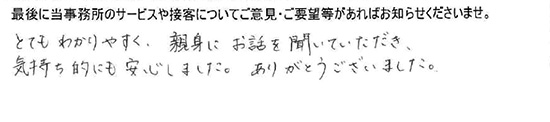 最後に当事務所のサービスや接客についてご意見・ご要望等があればお知らせくださいませ。
とてもわかりやすく、親身にお話を聞いていただき、
気持ち的にも安心しました。ありがとうございました。